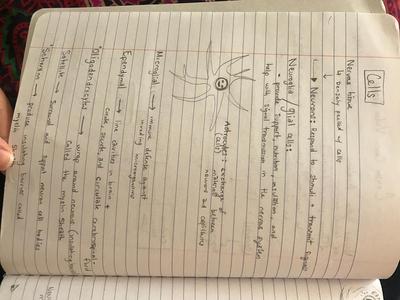 Cells
Nervous tissue
↳ Densely packed w/ cells
↓
1. → Neurons: Respond to stimuli + transmit signals
Neuroglia / glial cells:
• provide support, nutrition, insulation, and
help with signal transmission in the nervous system
Astrocytes: exchange of
(cells) materials between
neurons and capillaries
Microglial → immune defense against
invading microorganisms
Ependymal → line cavities in brain +
create, secrete, and circulate cerebrospinal fluid
*Oligodendrocytes → wrap around neurons (insulating)
Called the myelin sheath
Satellite → Surround and support neuron cell bodies
*Schwann → produce insulating barrier called
myelin sheath